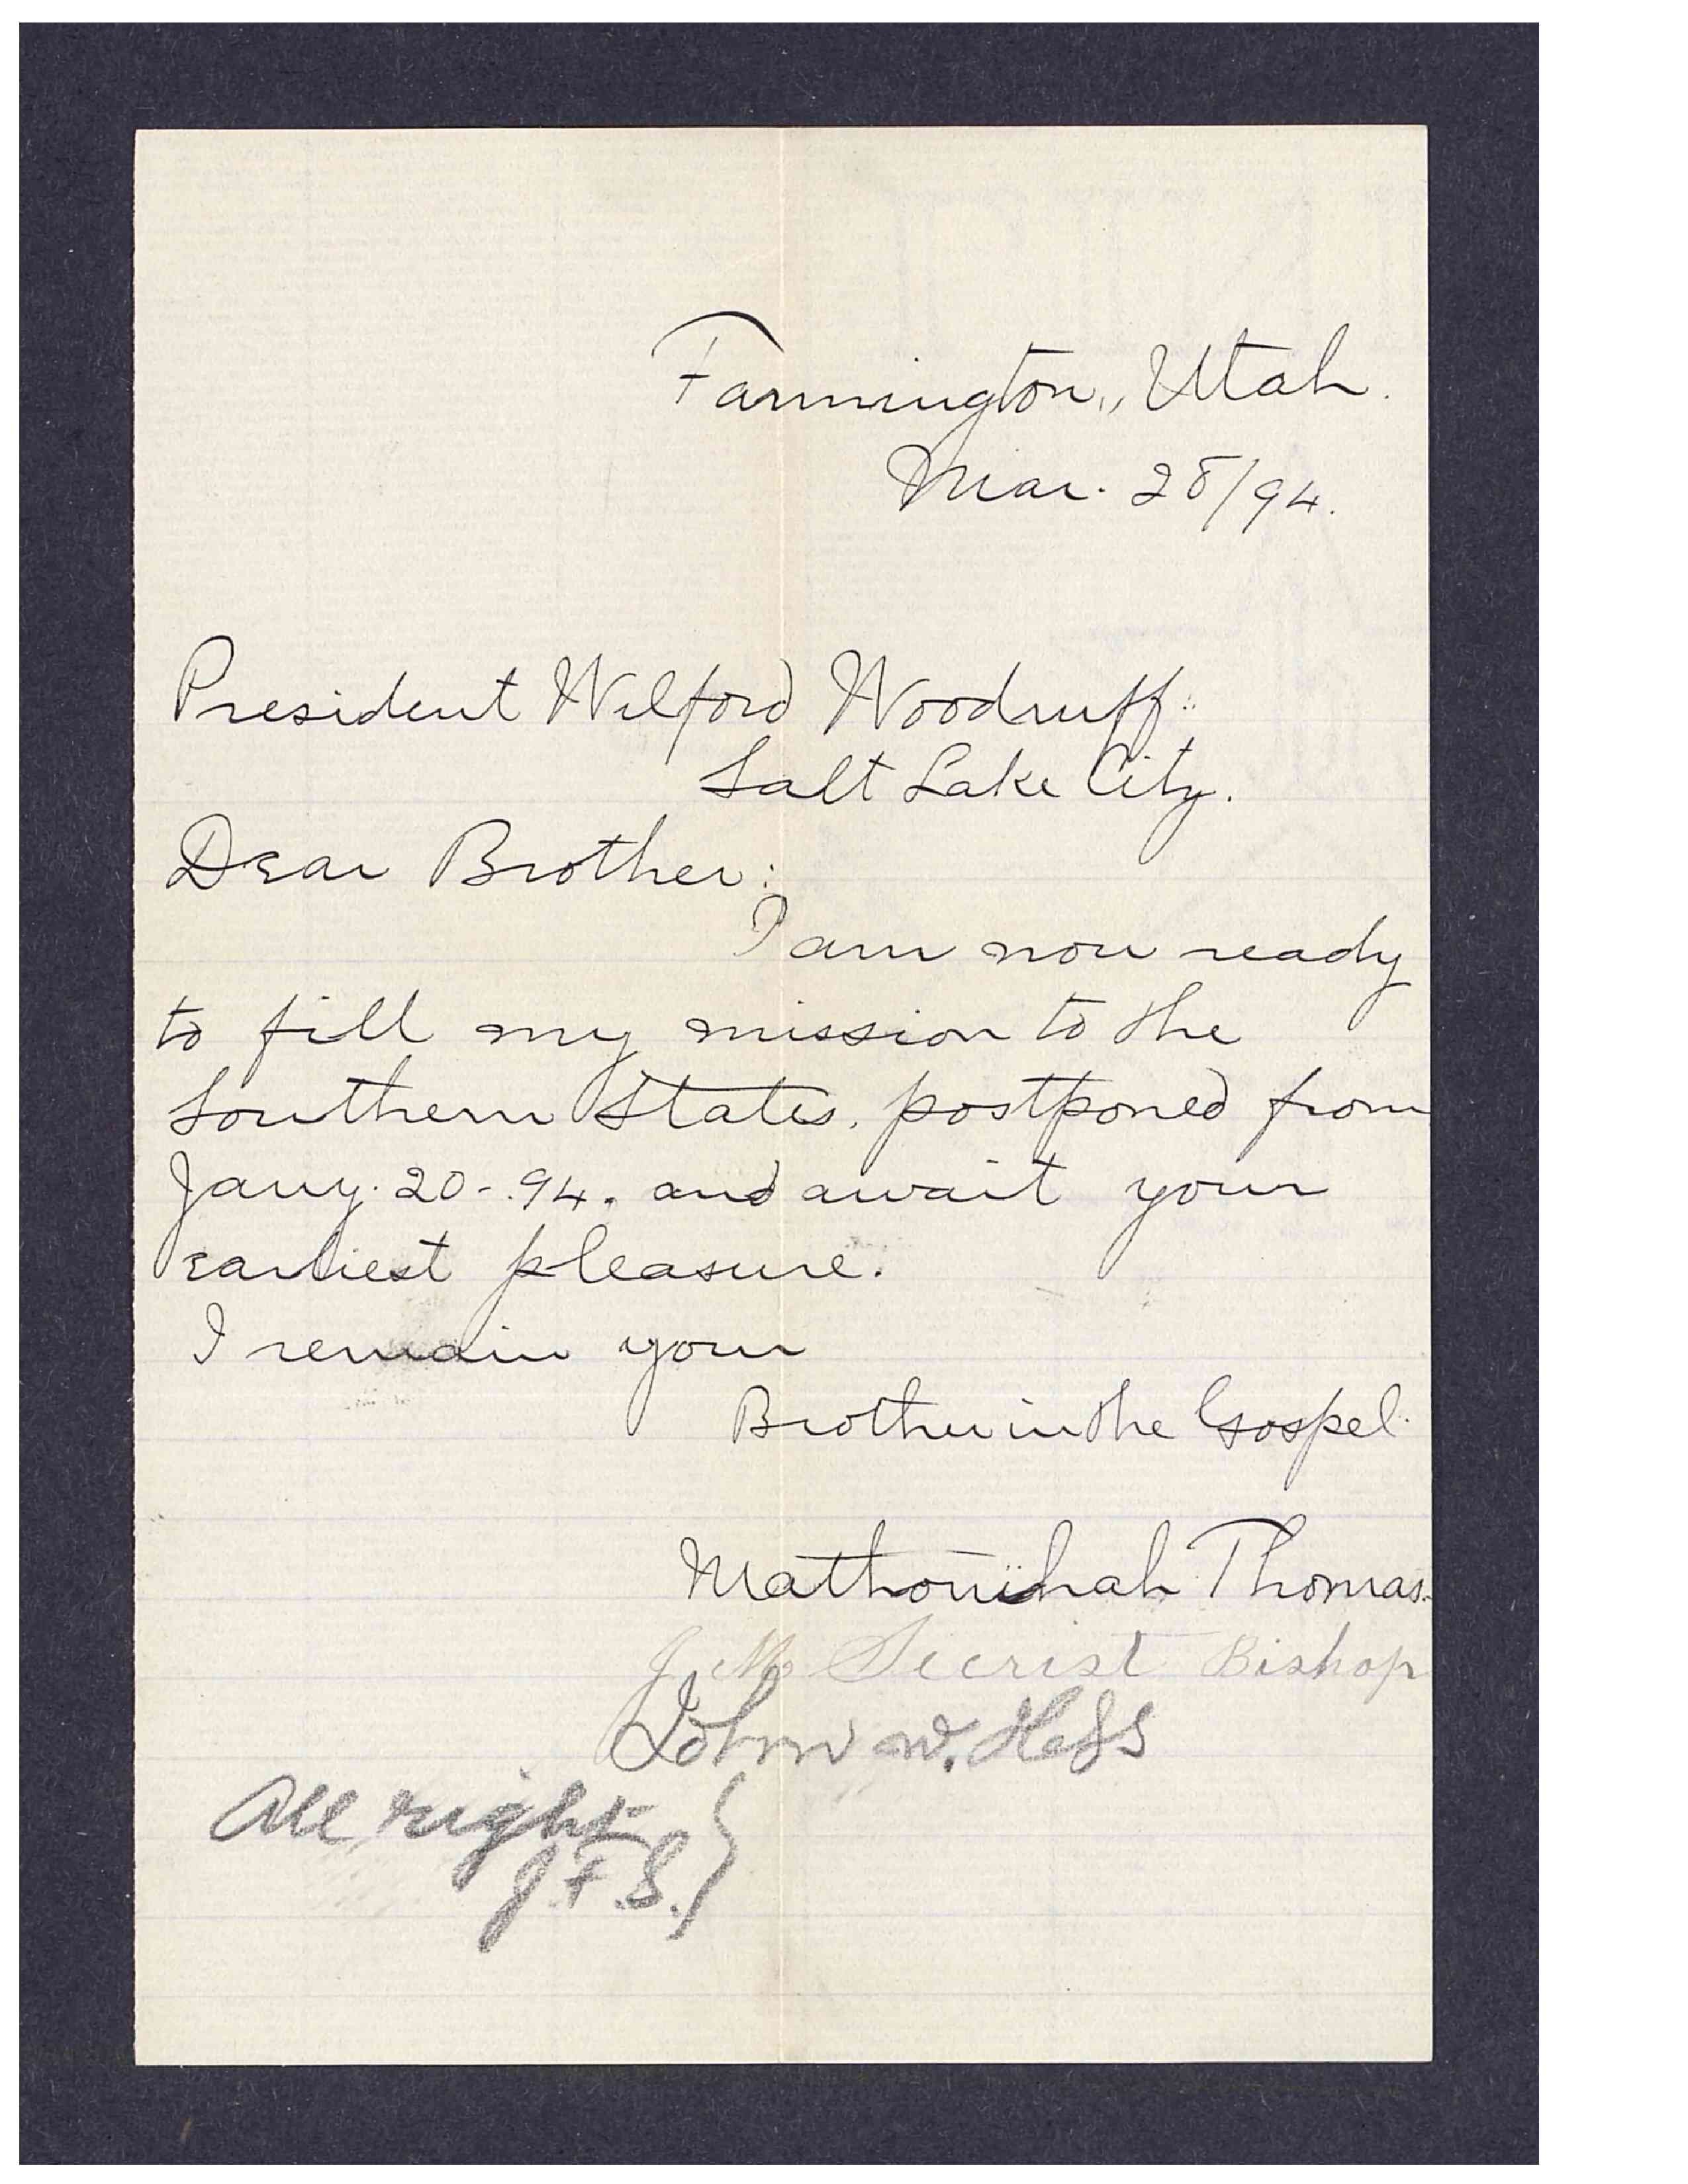 Farmington, Utah.
Mar. 28/94.
President Wilford Woodruff:
Salt Lake City.
Dear Brother:
I am now ready
to fill my mission to the
Southern States, postponed from
Jany. 20-94. and await your
earliest pleasure.
I remain your
Brother in the Gospel.
Mathonihah Thomas.
J M Secrist Bishop
John W. Hess
All right
J.F.S.